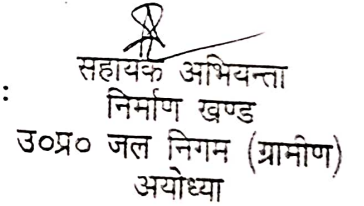 सहायक अभियन्ता
: निर्माण खण्ड
उ०प्र० जल निगम (ग्रामीण)
अयोध्या